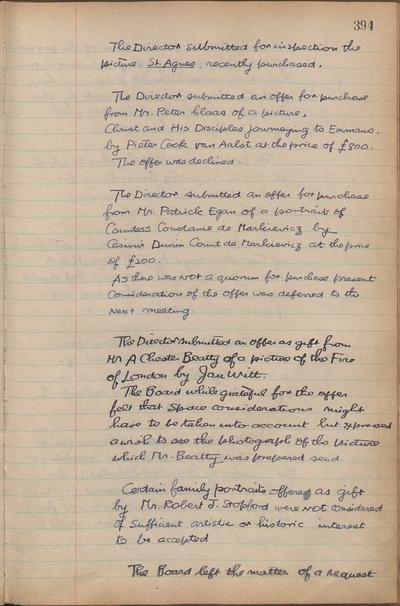 394
The Director submitted for inspection the
picture. St. Agnes, recently purchased.
The Director submitted an offer for purchase
from Mr. Peter Claas of a picture,
Christ and His Disciples journeying to Emmaus.
by Pieter Cook van Aalst at the price of £800.
The offer was declined.
The Director submitted an offer for purchase
from Mr. Patrick Egan of a portrait of
Countess Constance de Markievicz by
Casimir Dunin Count de Markievicz at the price
of £200.
As there was not a quorum for purchase present
Consideration of the offer was deferred to the
next meeting.
The Director submitted an offer as gift from
Mr A Chester Beatty of a picture of the Fire
of London by Jan Witt.
The Board while grateful for the offer
felt that space considerations might
have to be taken into account but expressed
a wish to see the photograph of the picture
which Mr. Beatty was prepared send.
Certain family portraits offered as gift
by Mr. Robert J. Stopford were not considered
of sufficient artistic or historic interest
to be accepted
The Board left the matter of a request